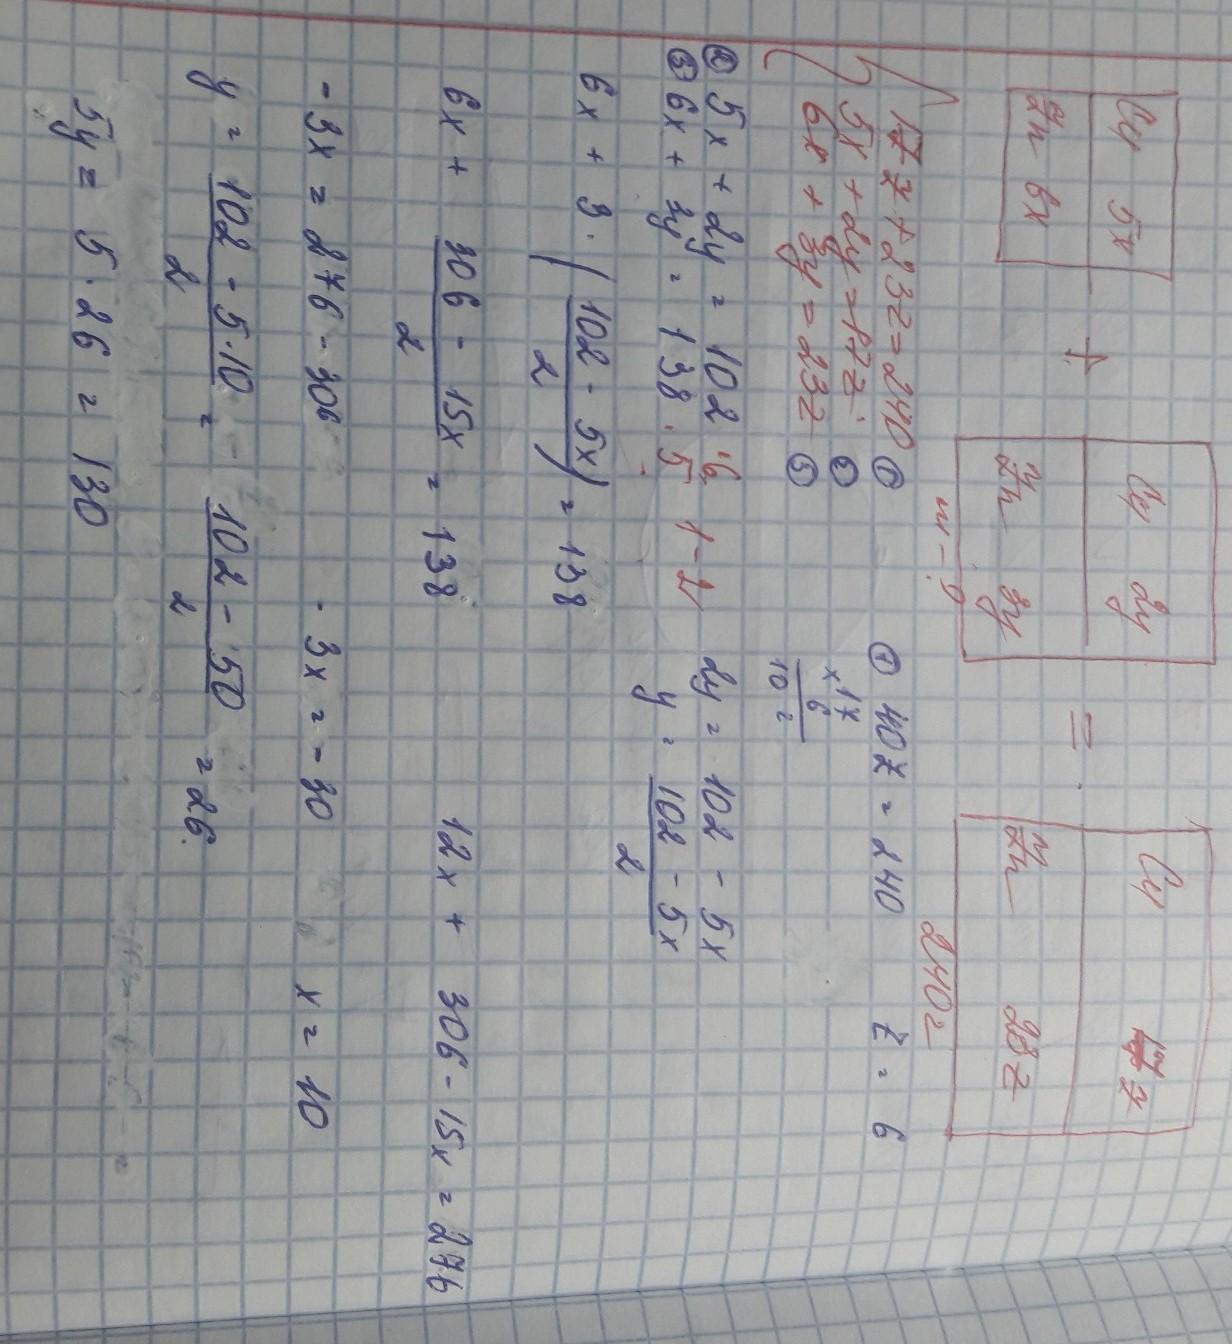 Cu 5x
Zn 6x
+
Cu 2y
Zn 3y
=
Cu 17z
Zn 23z
m-?
240г
17z + 23z = 240 ①
5x + 2y = 17z ②
6x + 3y = 23z ③
① 40z = 240 z = 6
17
× 6
102
② 5x + 2y = 102
③ 6x + 3y = 138
2y = 102 - 5x
y = 102 - 5x / 2
6x + 3 · ( 102 - 5x / 2 ) = 138
6x + 306 - 15x / 2 = 138 12x + 306 - 15x = 276
- 3x = 276 - 306 - 3x = - 30 x = 10
y = 102 - 5·10 / 2 = 102 - 50 / 2 = 26
5y = 5 · 26 = 130